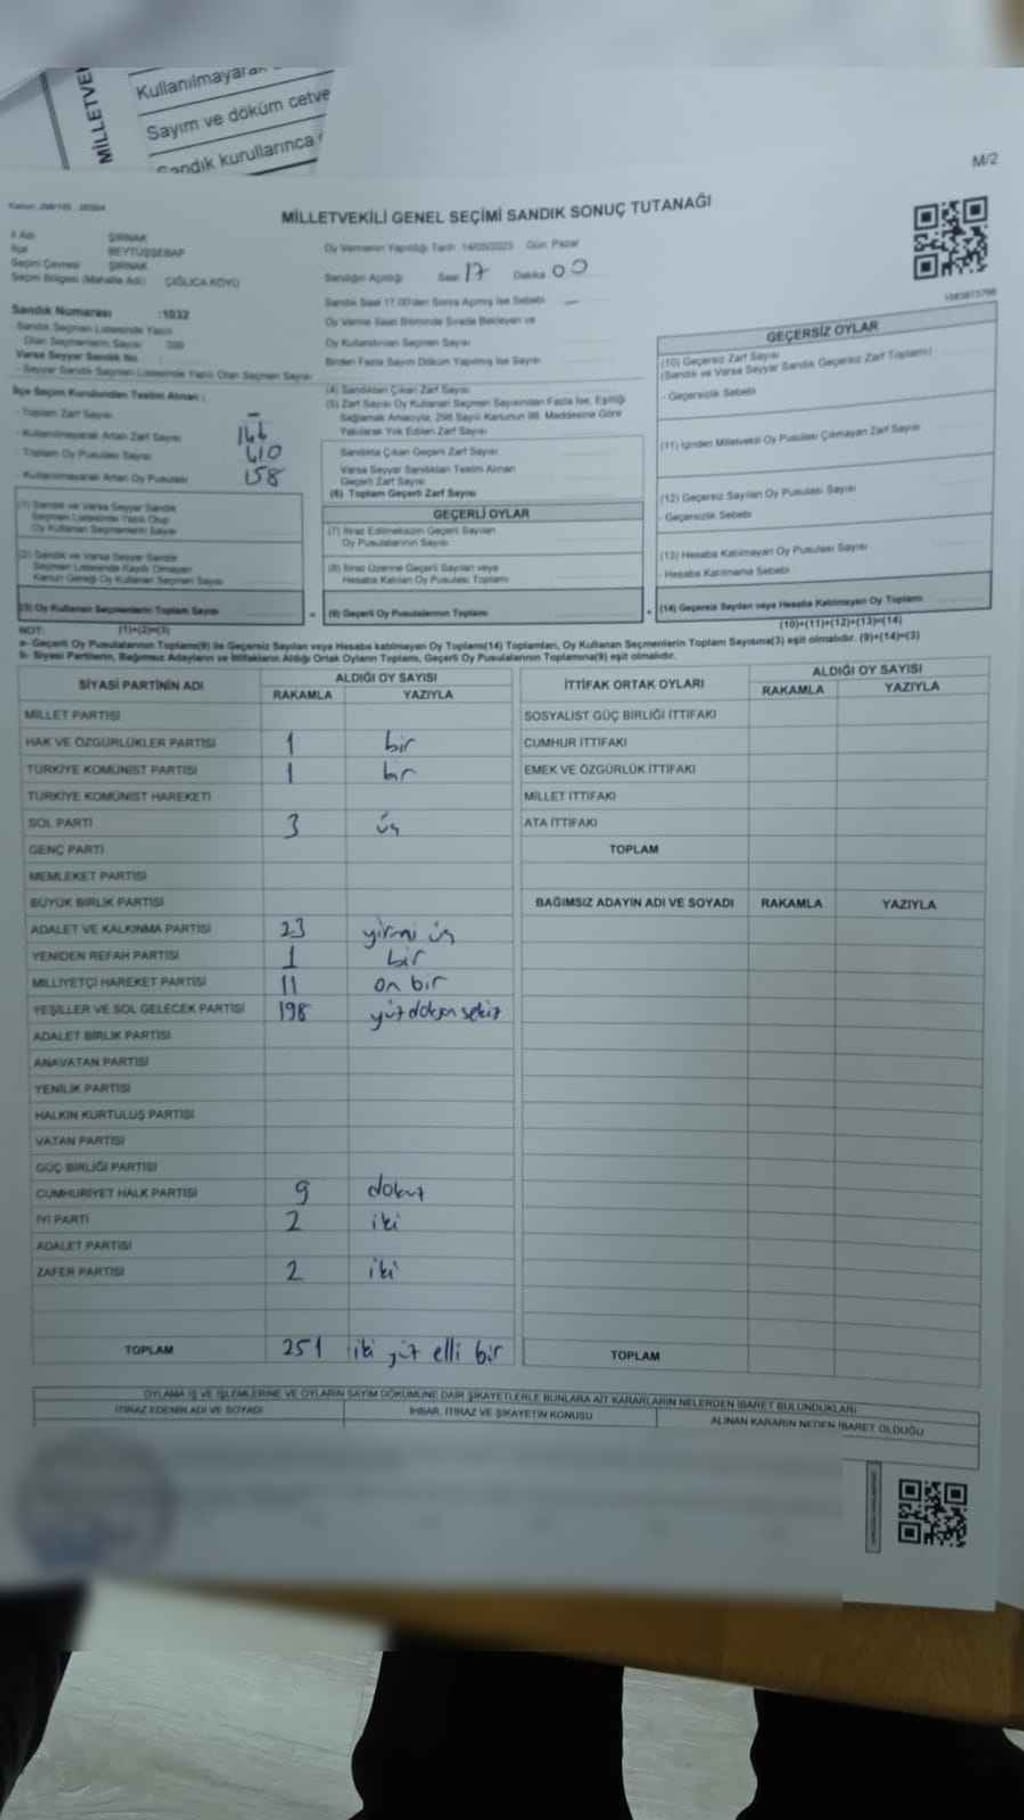 MİLLETVE
Kullanılmayara
Sayım ve döküm cetve
Sandık kurullarınca
M/2
MİLLETVEKİLİ GENEL SEÇİMİ SANDIK SONUÇ TUTANAĞI
İl Adı ŞIRNAK
İlçe BEYTÜŞŞEBAP
Seçim Çevresi ŞIRNAK
Seçim Bölgesi (Mahalle Adı) ÇIĞLICA KÖYÜ
Oy Vermenin Yapıldığı Tarih 14/05/2023 Gün Pazar
Sandığın Açılışı Saat 17 Dakika 00
Sandık Saat 17.00'den Sonra Açılmış İse Sebebi -
Sandık Numarası :1032
Sandık Seçmen Listesinde Yazılı
Olan Seçmenlerin Sayısı
Varsa Seyyar Sandık No
Seyyar Sandık Seçmen Listesinde Yazılı Olan Seçmen Sayısı
Oy Verme Saati Bitiminde Sırada Bekleyen ve
Oy Kullandırılan Seçmen Sayısı
Birden Fazla Sayım Döküm Yapılmış İse Sayısı
İlçe Seçim Kurulundan Teslim Alınan :
Toplam Zarf Sayısı -
Kullanılmayarak Artan Zarf Sayısı 166
Toplam Oy Pusulası Sayısı 410
Kullanılmayarak Artan Oy Pusulası 158
(1) Sandık ve Varsa Seyyar Sandık
Seçmen Listesinde Yazılı Olup
Oy Kullanan Seçmenlerin Sayısı
(2) Sandık ve Varsa Seyyar Sandık
Seçmen Listesinde Kayıtlı Olmayan
Kanun Gereği Oy Kullanan Seçmen Sayısı
(3) Oy Kullanan Seçmenlerin Toplam Sayısı
(1)+(2)=(3)
(4) Sandıktan Çıkan Zarf Sayısı
(5) Zarf Sayısı Oy Kullanan Seçmen Sayısından Fazla İse, Eşitliği
Sağlamak Amacıyla, 298 Sayılı Kanunun 98. Maddesine Göre
Yakılarak Yok Edilen Zarf Sayısı
Sandıkta Çıkan Geçerli Zarf Sayısı
Varsa Seyyar Sandıktan Teslim Alınan
Geçerli Zarf Sayısı
(6) Toplam Geçerli Zarf Sayısı
GEÇERLİ OYLAR
(7) İtiraz Edilmeksizin Geçerli Sayılan
Oy Pusulalarının Sayısı
(8) İtiraz Üzerine Geçerli Sayılan veya
Hesaba Katılan Oy Pusulası Toplamı
= (9) Geçerli Oy Pusulalarının Toplamı
GEÇERSİZ OYLAR
(10) Geçersiz Zarf Sayısı
(Sandık ve Varsa Seyyar Sandık Geçersiz Zarf Toplamı)
- Geçersizlik Sebebi
(11) İçinden Milletvekili Oy Pusulası Çıkmayan Zarf Sayısı
(12) Geçersiz Sayılan Oy Pusulası Sayısı
- Geçersizlik Sebebi
(13) Hesaba Katılmayan Oy Pusulası Sayısı
- Hesaba Katılmama Sebebi
+ (14) Geçersiz Sayılan veya Hesaba Katılmayan Oy Toplamı
(10)+(11)+(12)+(13)=(14)
NOT:
a- Geçerli Oy Pusulalarının Toplamı(9) ile Geçersiz Sayılan veya Hesaba katılmayan Oy Toplamı(14) Toplamları, Oy Kullanan Seçmenlerin Toplam Sayısına(3) eşit olmalıdır. (9)+(14)=(3)
b- Siyasi Partilerin, Bağımsız Adayların ve İttifakların Aldığı Ortak Oyların Toplamı, Geçerli Oy Pusulalarının Toplamına(9) eşit olmalıdır.
SİYASİ PARTİNİN ADI ALDIĞI OY SAYISI
RAKAMLA YAZIYLA
MİLLET PARTİSİ
HAK VE ÖZGÜRLÜKLER PARTİSİ 1 bir
TÜRKİYE KOMÜNİST PARTİSİ 1 bir
TÜRKİYE KOMÜNİST HAREKETİ
SOL PARTİ 3 üç
GENÇ PARTİ
MEMLEKET PARTİSİ
BÜYÜK BİRLİK PARTİSİ
ADALET VE KALKINMA PARTİSİ 23 yirmi üç
YENİDEN REFAH PARTİSİ 1 bir
MİLLİYETÇİ HAREKET PARTİSİ 11 on bir
YEŞİLLER VE SOL GELECEK PARTİSİ 198 yüz doksan sekiz
ADALET BİRLİK PARTİSİ
ANAVATAN PARTİSİ
YENİLİK PARTİSİ
HALKIN KURTULUŞ PARTİSİ
VATAN PARTİSİ
GÜÇ BİRLİĞİ PARTİSİ
CUMHURİYET HALK PARTİSİ 9 dokuz
İYİ PARTİ 2 iki
ADALET PARTİSİ
ZAFER PARTİSİ 2 iki
TOPLAM 251 iki yüz elli bir
İTTİFAK ORTAK OYLARI ALDIĞI OY SAYISI
RAKAMLA YAZIYLA
SOSYALİST GÜÇ BİRLİĞİ İTTİFAKI
CUMHUR İTTİFAKI
EMEK VE ÖZGÜRLÜK İTTİFAKI
MİLLET İTTİFAKI
ATA İTTİFAKI
TOPLAM
BAĞIMSIZ ADAYIN ADI VE SOYADI RAKAMLA YAZIYLA
TOPLAM
OYLAMA İŞ VE İŞLEMLERİNE VE OYLARIN SAYIM DÖKÜMÜNE DAİR ŞİKAYETLERLE BUNLARA AİT KARARLARIN NELERDEN İBARET BULUNDUKLARI
İTİRAZ EDENİN ADI VE SOYADI İHBAR, İTİRAZ VE ŞİKAYETİN KONUSU ALINAN KARARIN NEDEN İBARET OLDUĞU